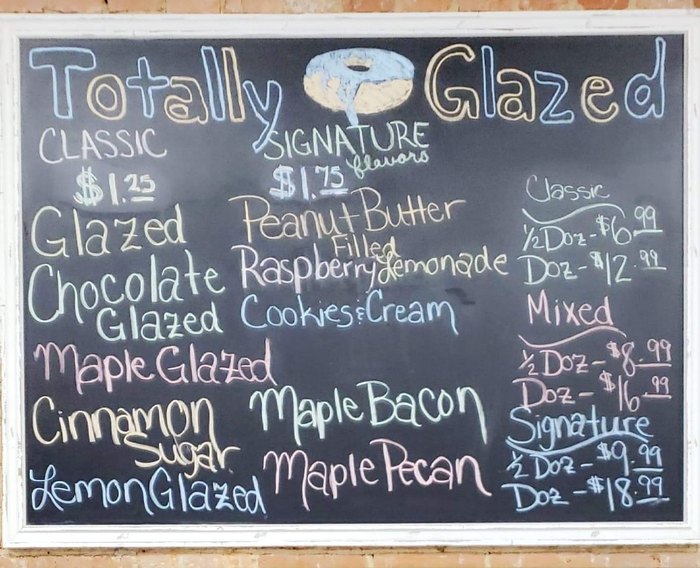 Totally Glazed
CLASSIC
$1.25
Glazed
Chocolate
Glazed
Maple Glazed
Cinnamon
Sugar
Lemon Glazed
SIGNATURE
flavors
$1.75
Peanut Butter
Filled
Raspberry Lemonade
Cookies & Cream
Maple Bacon
Maple Pecan
Classic
1/2 Doz - $6.99
Doz - $12.99
Mixed
1/2 Doz - $8.99
Doz - $16.99
Signature
1/2 Doz - $9.99
Doz - $18.99